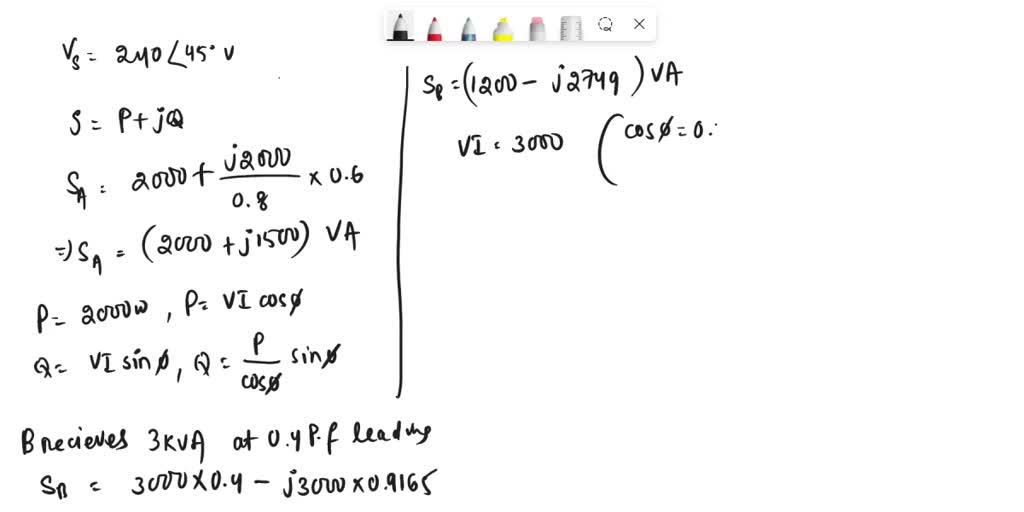 V_S = 240∠45° V
S = P + jQ
S_A = 2000 + j2000/0.8 × 0.6
⇒ S_A = (2000 + j1500) VA
P = 2000W, P = VI cosϕ
Q = VI sinϕ, Q = P/cosϕ sinϕ
B recieves 3KVA at 0.4 P.f leading
S_B = 3000×0.4 - j3000×0.9165
S_B = (1200 - j2749) VA
VI = 3000 (cosϕ = 0.